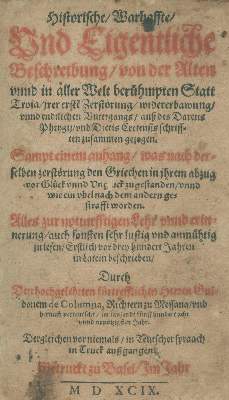 Historische / Warhaffte /
Und Eigentliche
Beschreibung / von der Alten
vnnd in aller Welt berühmpten Statt
Troia / jrer ersten Zerstörung / widererbawung /
vnnd endtlichen Vntergangs / auß des Daretis
Phrygij / vnd Dictis Cretensis schriff-
ten zusammen gezogen.
Sampt einem anhang / was nach der-
selben zerstörung den Griechen in jhrem abzug
vor Glück vnnd Vng ück zugestanden / vnnd
wie ein vbel nach dem andern ge-
strafft worden.
Alles zur notwendigen Lehr vnnd erin-
nerung / auch sonsten sehr lustig vnd anmühtig
zu lesen / Erstlich vor drey hundert Jahren
in Latein beschrieben /
Durch
Den hochgelehrten fürtrefflichen Herren Gui-
donem de Columna, Richtern zu Messana / vnd
hernach verteutscht / im
vnnd neuntzigsten Jahr.
Dergleichen vor niemals / in Teutscher spraach
in Truck außgangen.
Getruckt zu Basel / Im Jahr
M D XCIX.